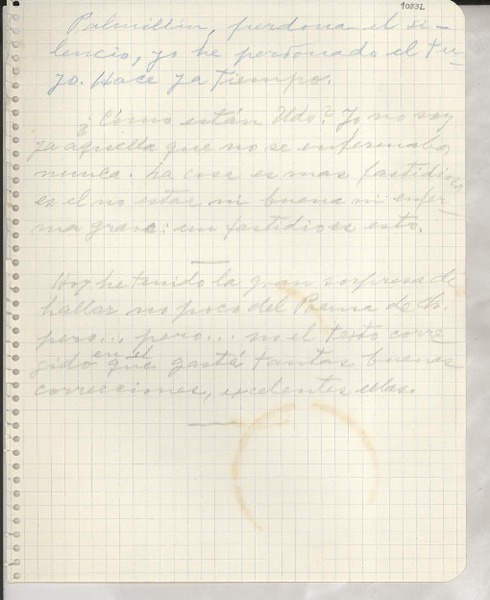 10832
Palmillin, perdona el si-
lencio, yo he perdonado el tu-
yo. Hace ya tiempo.
¿Cómo están Uds? Yo no soy
ya aquella que no se enfermaba
nunca. La cosa es mas fastidiosa
es el no estar ni buena ni enfer-
ma grave: un fastidio es esto.
Hoy he tenido la gran sorpresa de
hallar no poco del Poema de Ch.
pero... pero... no el texto corre
gido en el que gasté tantas buenas
correcciones, excelentes ellas.